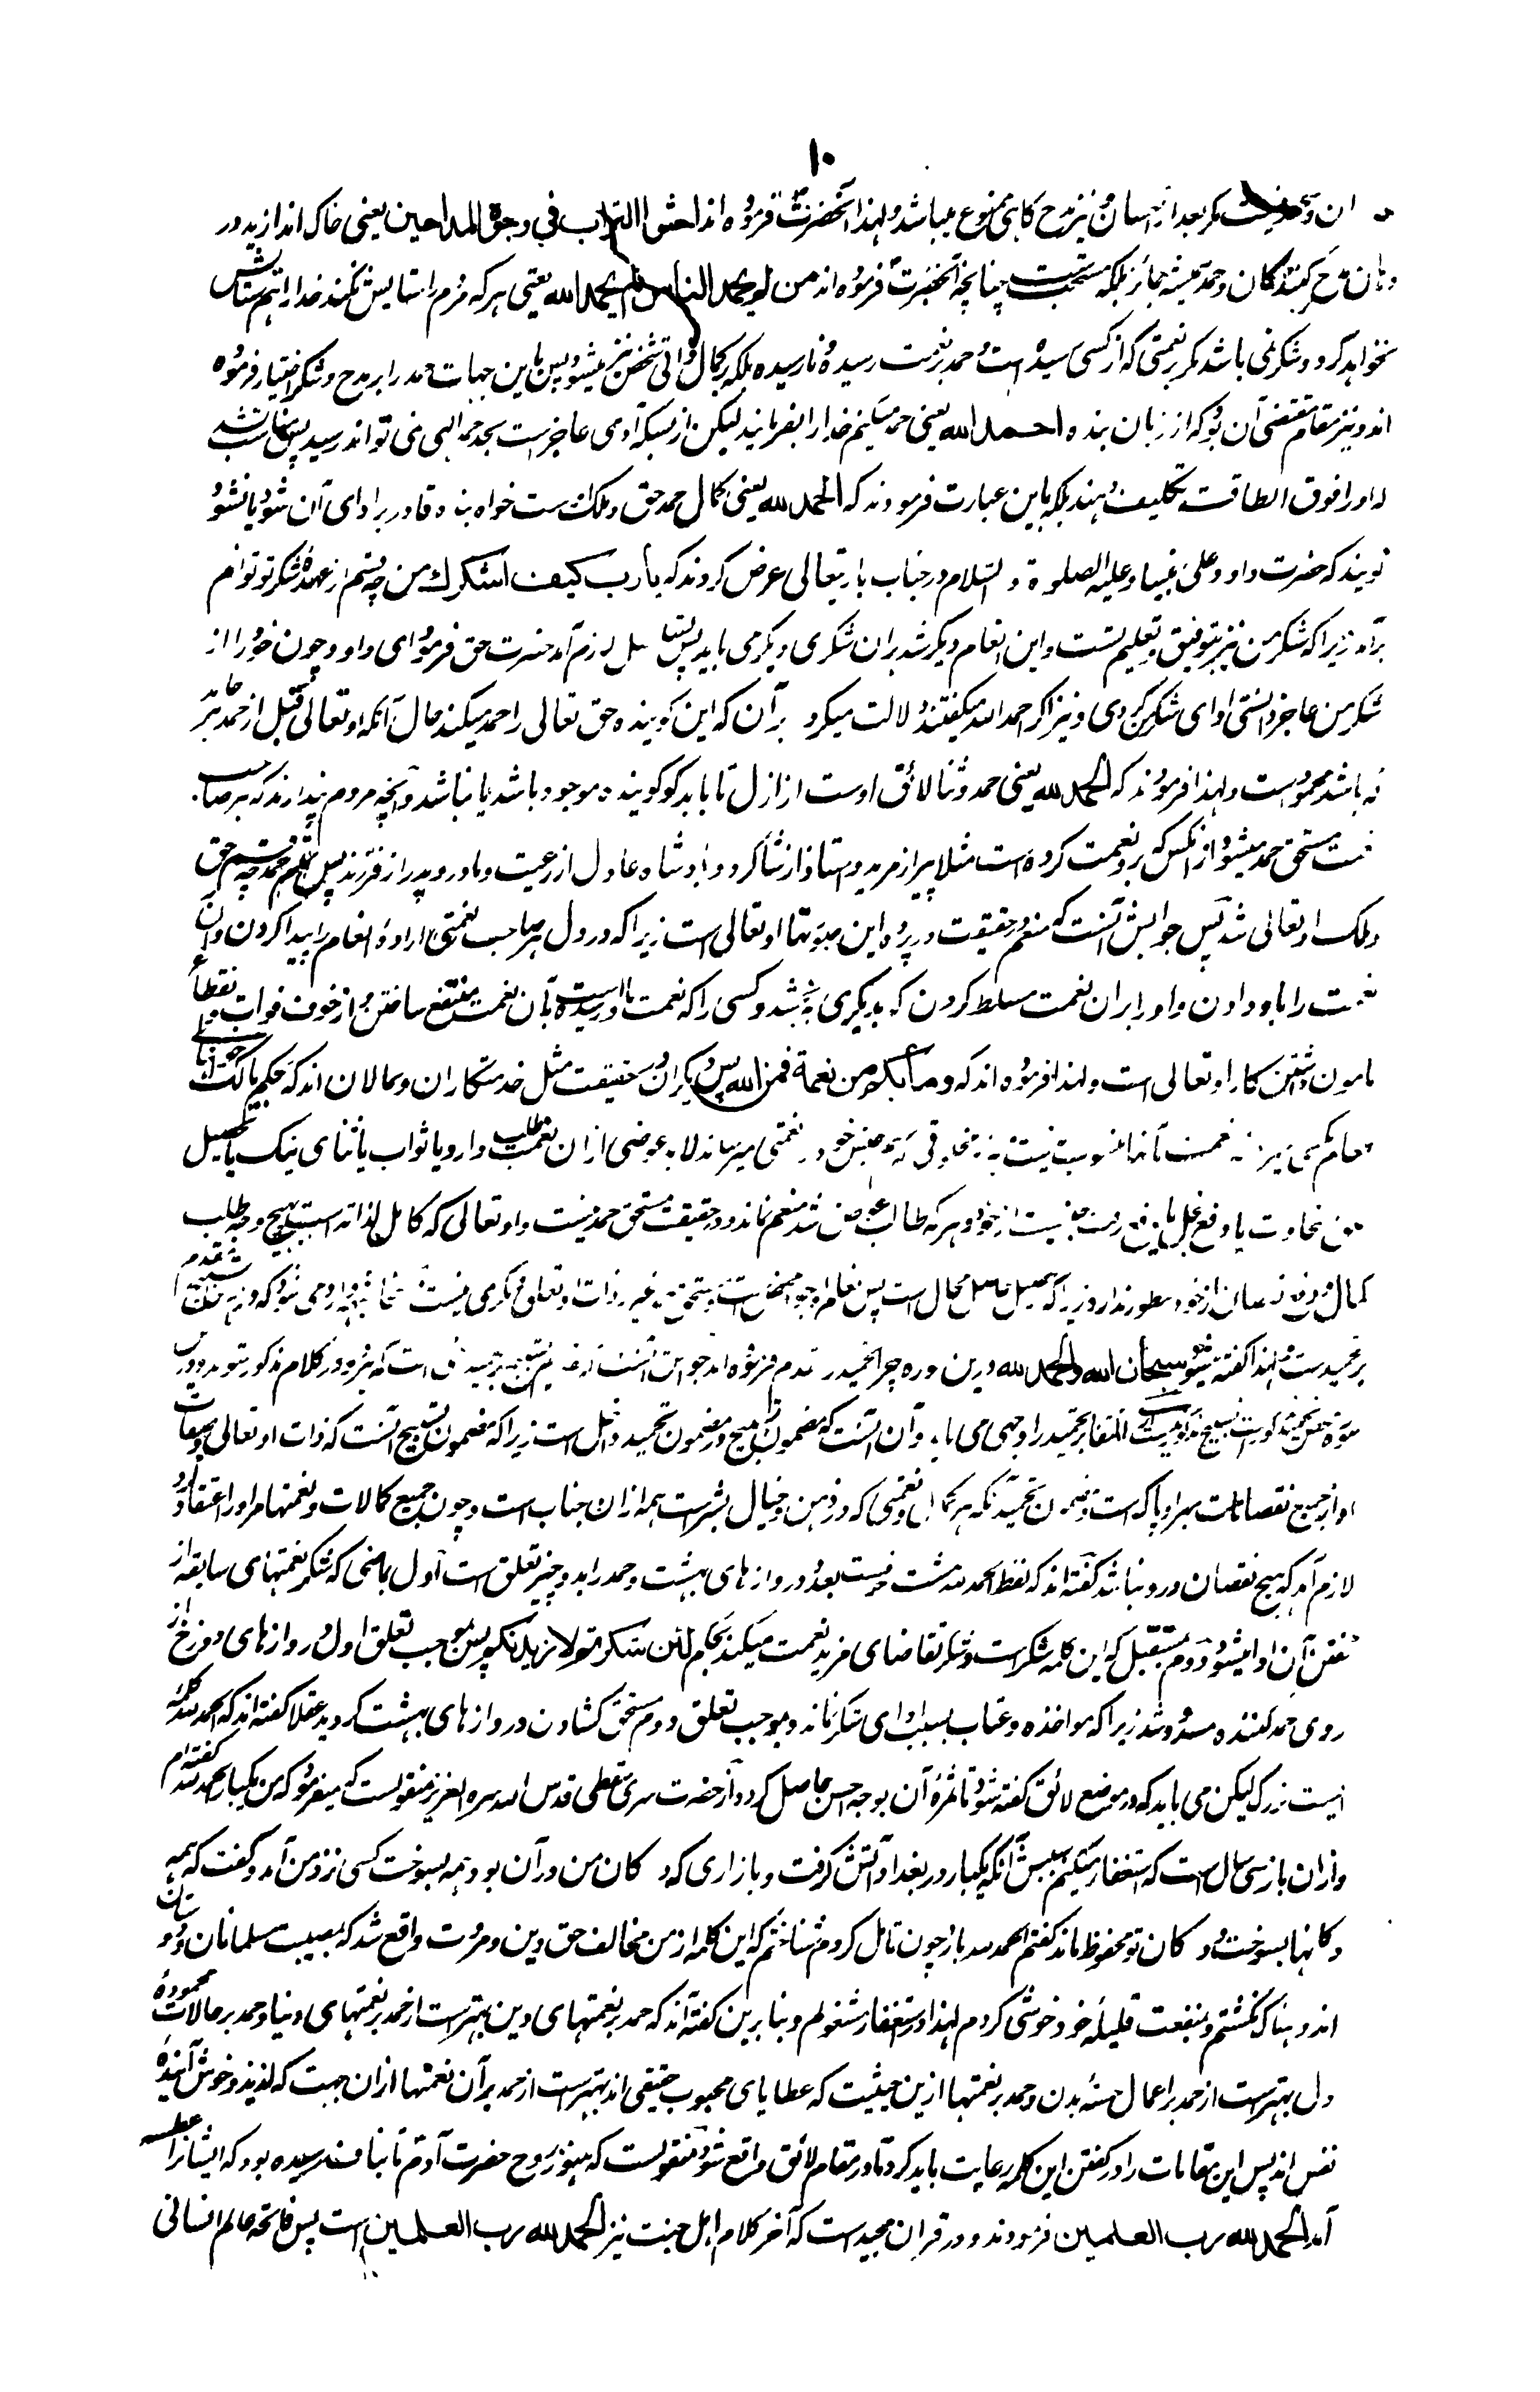 ۱۰
مگر بعد از احسان و نیز مدح گاهی ممنوع میباشد و لهذا آنحضرت فرموده اند احثوا التراب فی وجوه المداحین یعنی خاک اندازید در
دهان مدح کنندگان و حمد همیشه جائز بلکه مستحب است چنانچه آنحضرت فرموده اند من لم یحمد الناس لم یحمد الله یعنی هر که مردم را ستایش نکند خدا را هم ستایش
نخواهد کرد و شکر نمی باشد مگر بر نعمتی که از کسی رسیده است و حمد بر نعمت رسیده و نارسیده بلکه بر کمال ذاتی شخص نیز میشود پس باین جهات حمد را بر مدح و شکر اختیار فرموده
اند و نیز مقام مقتضی آن بود که از زبان بنده احمد الله یعنی حمد میکنم خدا را بفرمایند لیکن از بسکه آدمی عاجز است بحد حمد الهی نمی تواند رسید پس مناسب نشد
که او را فوق الطاقت تکلیف دهند بلکه باین عبارت فرمودند که الحمد لله یعنی کمال حمد حق و ملک اوست خواه بنده قادر بر ادای آن شود یا نشود
گویند که حضرت داود علی نبینا و علیه الصلوة و السلام در جناب باریتعالی عرض کردند که یا رب کیف اشکرک من چه قسم از عهدهٔ شکر تو توانم
برآمد زیرا که شکر من نیز بتوفیق و تعلیم تست و این انعام دیگر شد بران شکری دیگر می باید پس تسلسل لازم آمد حضرت حق فرمود ای داود چون خود را از
شکر من عاجز دانستی ادای شکر من کردی و نیز اگر احمد الله میگفتند دلالت میکرد بر آن که این گوینده حق تعالی را حمد میکند حال آنکه او تعالی قبل از حمد هر حامد
که باشد محمود است و لهذا فرمودند که الحمد لله یعنی حمد و ثنا لائق اوست از ازل تا بابد گو گوینده موجود باشد یا نباشد و آنچه مردم پندارند که هر صاحب
نعمت مستحق حمد میشود از آنکس که برو نعمت کرده است مثلا پیر از مرید و استاذ از شاگرد و بادشاه عادل از رعیت و مادر و پدر از فرزند پس همه حمد چه قسم حق
و ملک او تعالی شد پس جوابش آنست که منعم در حقیقت در پرده این صورتها او تعالی است زیرا که در دل هر صاحب نعمتی ارادهٔ انعام را پیدا کردن و آن
نعمت را باو دادن و او را بران نعمت مسلط کردن که بدیگری بخشد و کسی را که نعمت باو رسیده است بآن نعمت منتفع ساختن و از خوف فوات و انقطاع
مامون داشتن کار او تعالی است و لهذا فرموده اند که و ما بکم من نعمة فمن الله پس دیگران در حقیقت مثل خدمتگاران و حمالان اند که بحکم مالک
نعمتی میرساند لابد عوضی ازان نعمت طلب دارد یا ثواب یا ثنای نیک یا تحصیل
سخاوت یا دفع بخل از خود و هر که طالب عوض شد منعم نماند و در حقیقت مستحق حمد نیست و او تعالی که کامل لذاته است بهیچ وجه طلب
کمال و دفع نقصان از خود منظور ندارد زیرا که تحصیل حاصل محال است پس
بر تحمید است و لهذا گفته میشود سبحان الله و الحمد لله درین سوره چرا تحمید را مقدم فرموده اند جوابش آنست که
و آن آنست که مضمون تسبیح در مضمون تحمید داخل است زیرا که مضمون تسبیح آنست که ذات او تعالی و صفات
او از جمیع نقصانات مبرا و پاک است و مضمون تحمید آنکه هر کمالی و نعمتی که در ذهن و خیال بشر است همه ازان جناب است و چون جمیع کمالات و نعمتها مر او را اعتقاد کرد
لازم آمد که هیچ نقصان درو نباشد گفته اند که لفظ الحمد لله هشت حرف است بعدد دروازهای بهشت و حمد را بدو چیز تعلق است اول بماضی که شکر نعمتهای سابقه از
گفتن آن ادا میشود و دوم بمستقبل که این کلمه شکر است و شکر تقاضای مزید نعمت میکند بحکم لئن شکرتم لازیدنکم پس بموجب تعلق اول دروازهای دوزخ از
روی حمد کننده مسدود شد زیرا که مواخذه و عتاب بسبب ادای شکر نماند و بموجب تعلق دوم مستحق کشادن دروازهای بهشت گردید عقلا گفته اند که الحمد لله کلمه
ایست بزرگ لیکن می باید که در موضع لائق گفته شود تا ثمرهٔ آن بوجه احسن حاصل گردد از حضرت سری سقطی قدس الله سره العزیز منقولست که میفرمود که من یکبار الحمد لله گفته ام
و ازان باز سی سال است که استغفار میکنم سببش آنکه یکبار در بغداد آتش گرفت و بازاری که دکان من در آن بود همه بسوخت کسی نزد من آمد و گفت که همه
دکانها بسوخت و دکان تو محفوظ ماند گفتم الحمد لله باز چون تامل کردم شناختم که این کلمه از من مخالف حق دین و مروت واقع شد که بمصیبت مسلمانان
اندوهناک نگشتم و بمنفعت قلیله خود خوشی کردم لهذا در استغفار مشغولم و بنا برین گفته اند که حمد بر نعمتهای دین بهتر است از حمد بر نعمتهای دنیا و حمد بر حالات محمودهٔ
دل بهتر است از حمد بر اعمال حسنهٔ بدن و حمد بر نعمتها ازین حیثیت که عطایای محبوب حقیقی اند بهتر است از حمد بر آن نعمتها ازان جهت که لذیذ و خوش آیندهٔ
نفس اند پس این مقامات را در گفتن این کلمه رعایت باید کرد تا در مقام لائق واقع شود منقولست که هنوز روح حضرت آدم تا بناف نرسیده بود که ایشانرا عطسه
آمد الحمد لله رب العلمین فرمودند و در قرآن مجید است که آخر کلام اهل جنت نیز الحمد لله رب العلمین است پس فاتحه عالم انسانی